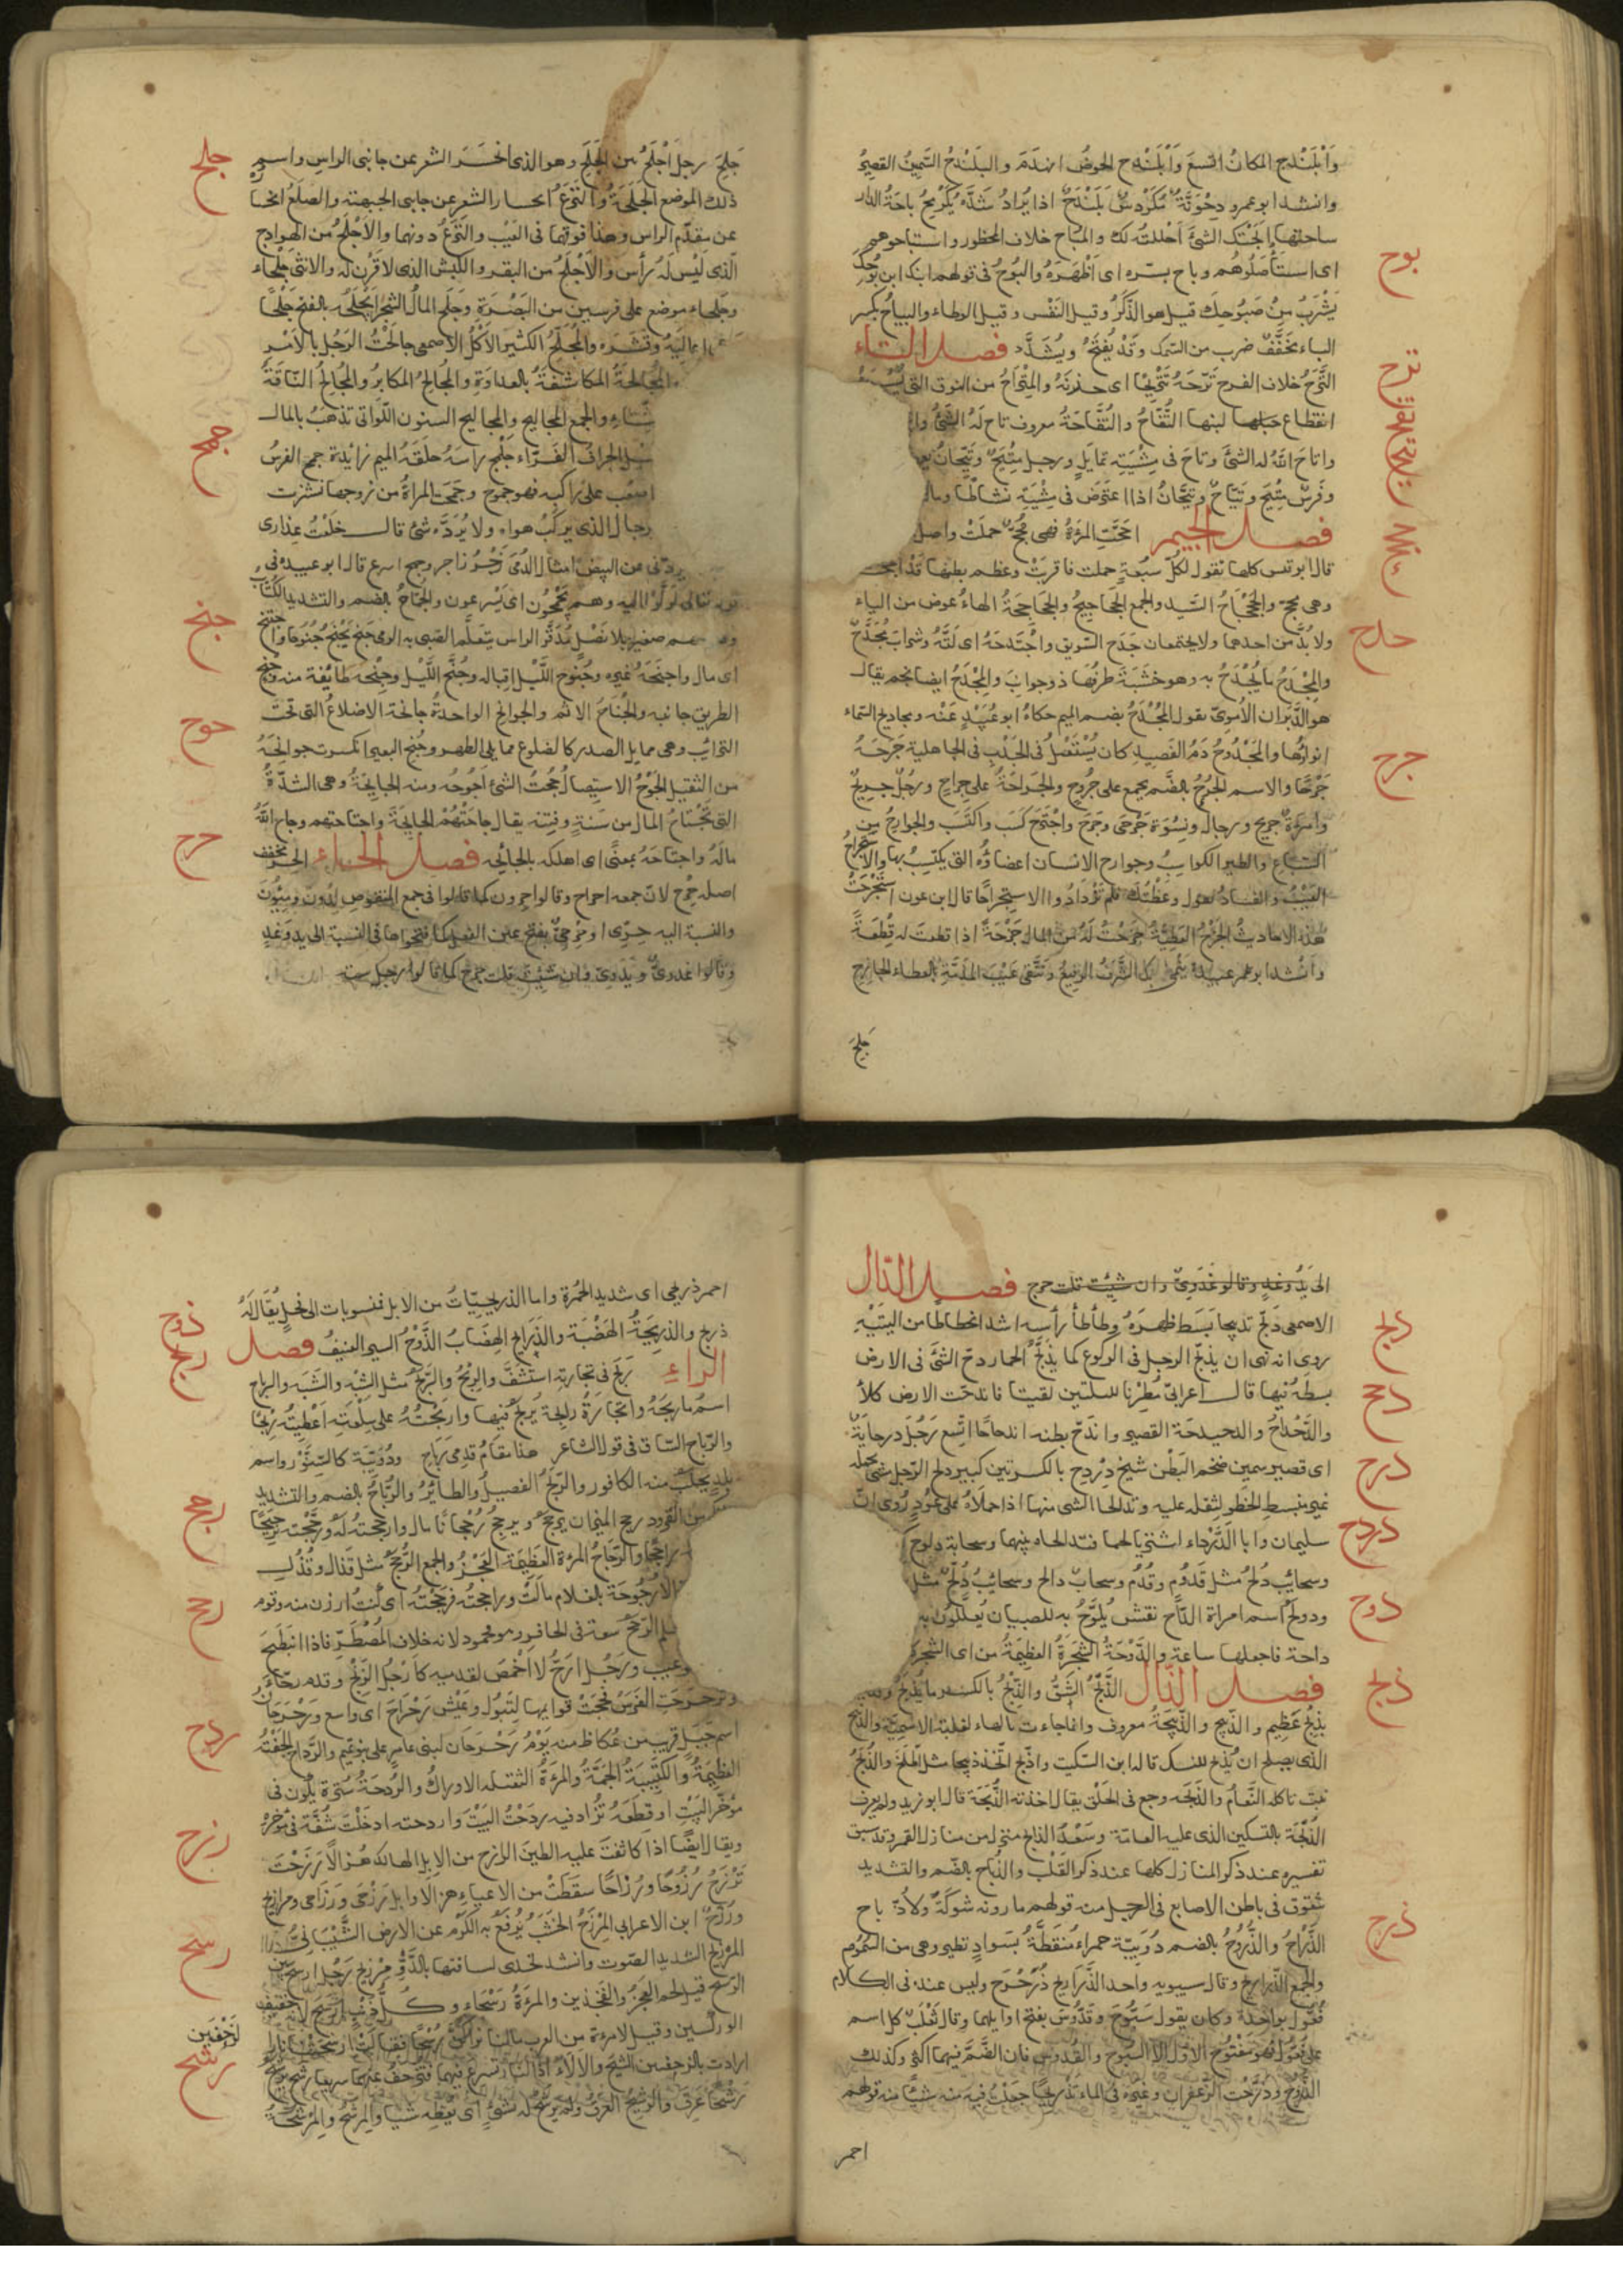 وَابْلَنْدح المكانُ اتسعَ وَابْلَنْدح الحوضُ انهدَمَ والبَلَنْدحُ السَّمِينُ القصِيرُ
وانشد ابو عمرو دِحْوَنَّةٌ مُكَرْدسٌ بَلَنْدَحٌ اذا يُرادُ شَدُّهُ يُكَرْمِحُ باحَةُ الدار
بوح
ساحتها ابَحْتُك الشئَ احْلَلتُه لك والمُباح خلاف المحظور واستباحوهم
اى استأصَلُوهُم وباح بسّره اى اَظْهَرَهُ والبُوحُ فى قولهم ابنك ابن بُوحِكَ
يَشْرَبُ مِنْ صَبُوحِكَ قيل هو الذَّكَرُ وقيل النَّفْس وقيل الوطاء والبياحُ بكسر
الباء مخفّفٌ ضرب من السّمك وقد يُفتَحُ ويُشدَّد فصل التاء
ترح
التَّرَحُ خلاف الفرح تَرَّحَهُ تَتْرِيحًا اى حزنَهُ والمِتْراحُ من النوق التى يُسْرع
انقطاع لبنها التُّفَّاحُ والتُّفَّاحَةُ معروف تاح لَهُ الشئُ
واتاحَ اللهُ له الشئَ وتاحَ فى مِشْيَتِه تمايَل ورجل مِتْيَحٌ وتَيِّحانٌ
وفَرسٌ مِتْيَح وتَيّاحٌ وتَيِّحانٌ اذا اعتَرَضَ فى مِشْيَتِه نشاطًا
فصل الجيم اجَحَّتِ المرْءَةُ فهى مُجِحٌّ حملَتْ واصل
قال ابو زيد قيس كلها تقول لكلّ سَبُعةٍ حملت فاقربَتْ وعظم بطنها قد اجحّت
وهى مُجِحّ والجَحْجَاحُ السَّيد والجمع الجَحَاجِيحُ والجَحَاجِحَةُ الهاءُ عوض من الياء
جدح
ولا بُدَّ من احدهما ولا يجتمعان جَدَح السّويق واجْتَدحَهُ اى لَتَّهُ وشراب مُجَدَّحٌ
والمِجْدَحُ ما يُجْدَحُ به وهو خشَبَة طرفُها ذو جوانِبَ والمِجْدَحُ ايضا نجم يقال
هو الدَّبَران الاُموىّ يقول المُجْدَحُ بضم الميم حكاهُ ابو عُبَيْدٍ عَنْه ومجاديح السماء
جرح
انواؤُها والمَجْدُوحُ دَمُ الفَصِيد كان يُسْتَعمَلُ فى الجَدْبِ فى الجاهلية جَرَحَهُ
جَرْحًا والاسم الجُرْحُ بالضّم يجمع على جُرُوحٍ والجَراحَةُ على جِراحٍ ورجُلٌ جريحٌ
وامرَءَةٌ جريح ورجال ونِسْوَة جَرْحَى وجَرَحَ واجْتَرَحَ كَسَبَ واكتَسَبَ والجوارِحُ مِن
السّباعِ والطير الكواسِبُ وجوارح الانسان اعضاؤُه التى يكتسِبُ بها
العَيْبُ والفسادُ يقول وعَظْتُكَ فلم تَزْدَادُوا الا استِجراحًا قال ابن عون استَجْرَحَتْ
هذه الاحاديثُ الجَرْحُ العَطِيَّةُ جَرَحْتُ لَهُ مِنَ المال جَرْحَةً اذا قطعتَ له قِطْعَةً
جَلِحَ
جلح
جَلِحَ رجل اَجْلَحُ بَيّن الجَلَحِ وهو الذى انحَسَرَ الشعر عن جانبى الراس واسم
ذلك الموضع الجَلَحَةُ والنَزَعُ انحسار الشعر عن جانبى الجبهته والصلَعُ انحسار
عن مقدّم الراس وهذا فوقهما فى العَيْب والنَزَعُ دونهما والاَجْلَحُ من الهَوادِج
الذى ليْس لَهُ رأس والاَجْلَحُ من البقر والكَبْش الذى لا قَرْن له والانثى جلحاء
وجَلحاء موضع على فرسخين من البَصْرَةِ وجَلَح المالُ الشجَرَ يَجْلَحُه بالفتح جَلْحًا
اعاليَهُ وقَشَره والمُجَلِّحُ الكثير الاَكْلُ الاصمعى جالَحْتُ الرَجُل بالاَمر
المُجَالحَةُ المكاشَفَةُ بالعداوَةِ والمُجالِحُ المكابِرُ والمُجالِحُ النّاقَةُ
والجمع المجاليح والمجاليح السنون اللّواتى تذهَبُ بالمال
جمح
سَيْل الجراف القَرّاء جَلْمَح راسَهُ حلَقَهُ الميم زائدة جمح الفرسُ
على راكبه فهو جموح وجَمَحَت المراةُ من زوجها نشزت
الرجال الذى يركَبُ هواه ولا يُردّه شئ قال خَلَعْتُ عِذارى
يردّنى عن البيض امثال الدُّمَى زَجْرُ زاجر وجمح اسرع قال ابو عبيده فى
قوله تعالى لَوَلَّوْا اليه وهم يَجْمَحُون اى يَسْرعون والجُمّاحُ بالضم والتشديد
جنح
سهم صغير بلا نَصْل مُدَوَّر الراس يتعلّم الصبى به الرمى جَنَح يَجْنَحُ جُنُوحًا
اى مال واجنَحَهُ غيره وجُنُوح اللَّيْل اِقباله وجُنْح اللَّيْل وجِنْحه طائفة منه
الطريق جانبه والجُناح الاثم والجوانح الواحدةُ جانحة الاضلاعُ التى تحْتَ
جوح
الترائب وهى مما يلى الصدر كالضلوع مما يلى الظهر وجُنِحَ البعير انكسرت جوانحُهُ
من الثقيل الجَوْحُ الاستيصال جُحْتُ الشئ اَجُوحُه ومنه الجايحةُ وهى الشدّةُ
التى تَجْتَاحُ المال من سَنَةٍ وفِتنَه يقال جاحَتْهُمُ الجايحَة واجتاحتهم وجاح الله
حرح
مالَهُ واجتاحَهُ بمعنًى اى اهلكه بالجائحه فصل الحاء الحِر مُخَفف
اصله حِرْح لانّ جمعه احراح وقالوا حِرون كما قالوا فى جمع المنقوص لِدُون ومِئونَ
والنسبة اليه حِرّى اوحرحىٌ بفتح عين الفعل كما فتحوها فى النسبة الى يد وغدٍ
وقالوا غدوىٌّ ويَدَوىّ وان شِئْتَ قلت حَرِحٌ كما قالوا رجل سته
الى يَدٍ وغدٍ وقالو غَدَوىّ وان شِئت قلت حرح فصل الدال
دبح
الاصمعى دَبّح تدبيحا بَسَط ظهرَهُ وطأطأ رأسه اشد انحطاطا من اليَتَيْهِ
روى انه نهى ان يُدبّح الرجل فى الركوع كما يُدَبّحُ الحمار دحّ الشئَ فى الارض
دحح
بسطَهُ فيها قال اعرابىّ مُطِرْنا لليلتين بقيتا فاندحّت الارض كلأً
والدَّحْداحُ والدحيدحة القصير واندَحّ بطنه اندحاحًا اتّسع رَجُل درحايَةٌ
درح
اى قصير سمين ضخم البَطْن شيخ دِرْدِح بالكسر تين كبير دلح الرجل
غير منبسط الخَطو لِثِقله عليه وتدالحا الشئ بينها اذا حملاهُ على عُودٍ رُوى انّ
دردح
سليمان وابا الدَّرْداء اشتريا لحما فتدالحاه بينهما وسحابة دلوح
وسحايب دُلُحٌ مثل قَدُوْم وقُدُمْ وسحابٌ دالح وسحايبُ دُلّحٌ مثل
دوح
ودولح اسم امراة الدّاح نقش يُلَوَّحُ به للصبيان يُعَلّلُونَ به
داحة فاجعلها ساعة والدَّوْحَةُ الشجَرَةُ العظيمَةُ من اى الشجره
ذبح
فصل الذال الذَّبْحُ الشَّقُّ والذِّبْحُ بالكسر ما يُذْبَحُ
بذِبْحٍ عَظِيم والذّبيح والذَّبيْحَةُ معروف وانما جاءت بالهاء لغلبة الاسميّة والذّبح
الذى يصلح ان يُذْبح للنسك قاله ابن السكيت واذّبَح اتّخذ ذبيحا مثل اطّبَخَ والذُّبَحُ
نبت تاكله النَّعامُ والذُّبحه وجع فى الحَلْق يقال اخذته الذُّبَحَة قال ابو زيد ولم يعرف
الذُّبْحَة بالتسكين الذى عليه العامّة وسَعْدٌ الذابح منزل من منازل القمر وقد سبق
تفسيره عند ذكر المنازل كلها عند ذكر القَلْب والذُّبّاح بالضّم والتشديد
شقوق فى باطن الاصابع فى الرجل منه قولهم ما دونه شوكَةٌ ولا ذُبّاح
ذرح
الذّرّاحُ والذُّرُّوحُ بالضم دُوَيبّة حمراء مُنَقَّطَةٌ بسَوادٍ تطير وهى من السُّمُوم
والجمع الذَّراريح وقال سيبويه واحد الذَّراريح ذُرَحْرَح وليس عنده فى الكلام
فُعُّول بواحدة وكان يقول سَبّوحَ وقَدّوسَ بفتح اوايلهما وقال ثَعْلَبٌ كل اسم
على فَعُّول فهو مَفْتُوح الاول الاّ السُّبوح والقُدّوس فان الضَّمّ فيهما اكثر وكذلك
الذُّرّوح وذَرّحْت الزّعفران وغيره فى الماء تذريحًا جعلْتُ فيه منه شيئًا منه قولهم
احمر
احمر ذريحىّ اى شديد الحُمْرة واما الذريحيّاتُ من الابل فمنسوبات الى فحلٍ يقال لَهُ
ذوح
ذريح والذريحَةُ الهَضْبَة والذَرايح الهِضَابُ الذَّوْحُ السير العنيفُ فصل
ربح
الراء رَبحَ فى تجارته استَشَفّ والرِبْحُ والرَّبَحُ مثل الشِبْه والشَبَه والرباح
اسمُ ما رَبحَهُ وتجارَةٌ رابِحة يُربَحُ فيها واربَحْتُهُ على سِلْعَتِه اعطيتُه رِبْحًا
والرَّباح السّاق فى قول الشاعر هذا مقامُ قَدمَى رَباحِ ودُوَيبّة كالسِنَّوْر واسم
بلدٍ يُجْلَبُ منه الكافور والرُّبَحُ الفَصِيلُ والطايرُ والرُّبّاحُ بالضم والتشديد
رجح
من القرود رجح الميزان يرجَحُ ويرجِحُ رُجْحانًا مال وارجَحْتُه لَهُ ورَجّحْتُه ترجيحًا
راجحًا والرَّجَاحُ المرْءة العَظِيمَة العَجُز والجمع الرُجُحُ مثل قَذالٍ وقُذُلٍ
الاُرجُوحَة بالغلام مالَتْ وراجحْتُه فرَجَحْتُه اى كُنتُ ارزن منه وقوم
رحح
حُلم الرحَحُ سَعة فى الحافر وهو محمود لانه خلاف المُصْطَرّ فاذا انبَطَحَ
عيب ورَجُل ارحُّ لا اخْمَصَ لقدميه كارْجُل الزّنْج وقدم رحّاء
وترحرَحَتِ الفَرَسُ فحَجَتْ قوايمها لتَبُول وعَيْش رَحْرَاحٌ اى واسع ورَحْرَحان
اسم جَبَلٍ قريب من عُكاظ منه يَوْمُ رَحْرحان لبنى عامِر على بنى تميم والرَّداح الجَفْنَةُ
ردح
العَظِيمَةُ والكَتِيبَةُ الجَمَّةُ والمرْءَةُ الثقيله الاوراكُ والرُدحَةُ سُتْرة يكون فى
مؤخّر البَيتِ او قِطعَهُ تُزاد فيه ردَحْتُ البَيْتَ واردحته ادخَلْتَ شُقّةً فى مؤخره
رزح
ويقال ايْضًا اذا كاثَفتَ عليه الطين الرّازح من الابل الهالكُ هُزالًا رَزَحَتْ
تَرْزَحُ رُزُوْحًا ورُزاحًا سقَطَتْ من الاعياءِ هزالا وابل رَزْحَى ورَزاحى ومرازيح
ورُزّح ابن الاعرابى المِرْزَحُ الخَشَبُ يُرفَعُ به الكَرْم عن الارض الشَّيْبانىّ
رسح
المِرْزيح الشديد الصوت وانشد
الرسَح قلة لحم العَجُز والفَخذين والمرءَةُ رَسْحاء وكُلُّ ذئبٍ ارسَح لانه خفيف
الوركين وقيل لامرءة من العرب مالنا نراكُنّ رُسْحًا فقالت ارسَحَتْنا نار
لزحفين
رشح
ارادت بالزحفين الشيح والالاءُ
رَشْحًا عَرِقَ والرشيحُ العَرقُ ولم يَرشَحْ له بشئٍ اى لم يُعْطِه شيأ والمِرشَحُ والمِرْشَحَةُ